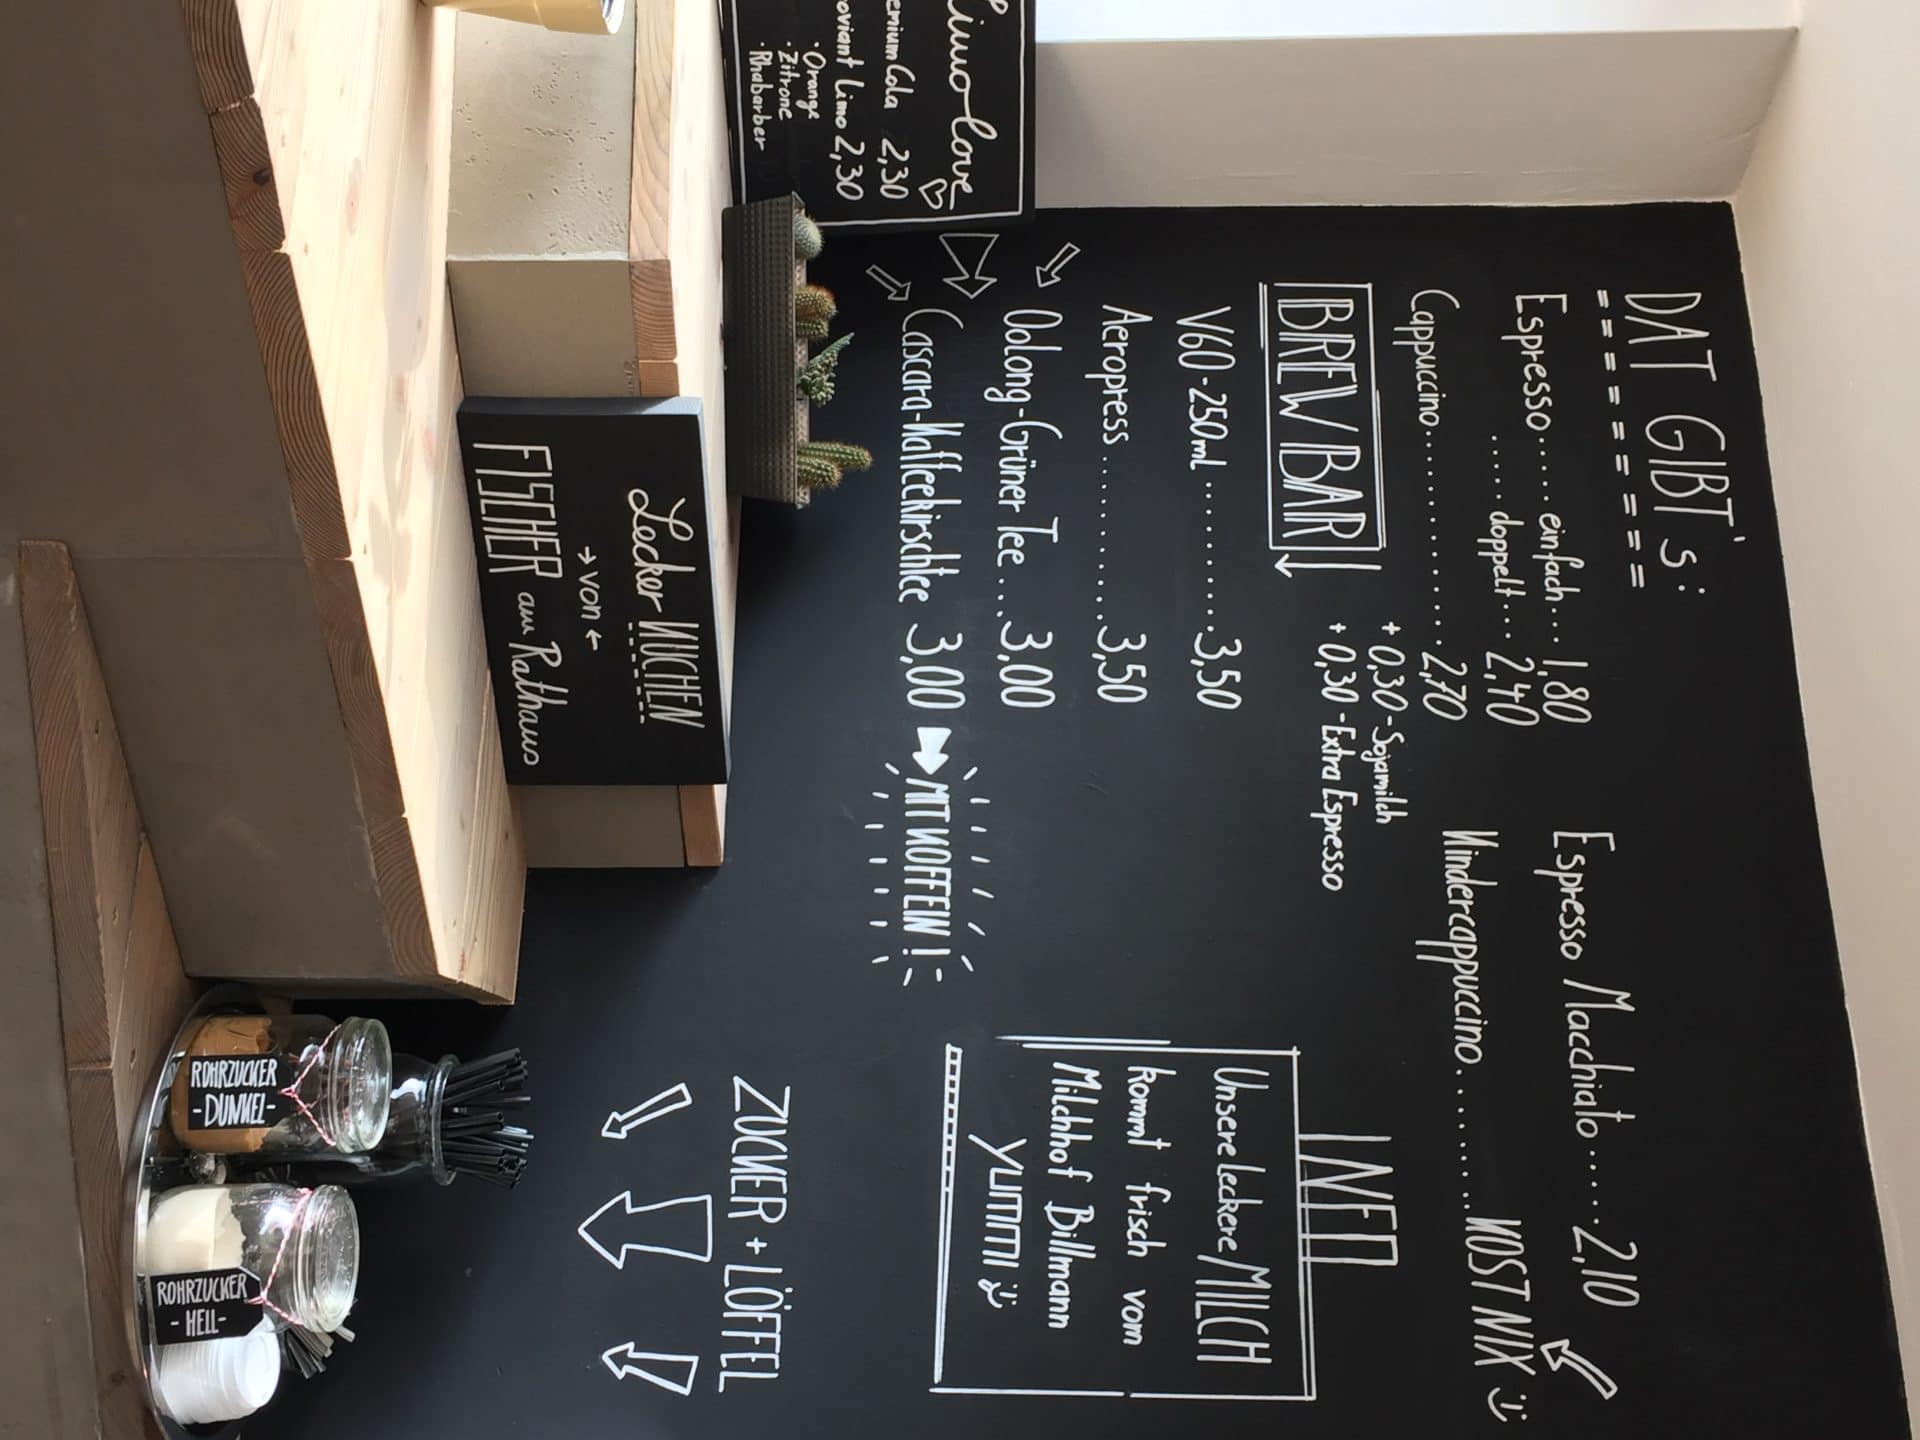 DAT GIBT's:
==========
Espresso ...... einfach ... 1,80
...... doppelt ... 2,40
Cappuccino ................ 2,70
+ 0,30 - Sojamilch
+ 0,30 - Extra Espresso
Espresso Macchiato ...... 2,10
Kindercappuccino ........... KOST NIX :)
BREW BAR
V60 - 250ml ........... 3,50
Aeropress ............ 3,50
Oolong-Grüner Tee .... 3,00
Cascara-Kaffeekirschtee 3,00
MIT KOFFEIN!
INFO
Unsere leckere MILCH
kommt frisch vom
Milchhof Billmann
YUMMI :)
ZUCKER + LÖFFEL
Limo love
Cola 2,30
Limo 2,30
· Orange
· Zitrone
· Rhabarber
Lecker KUCHEN
→ von ←
FISCHER am Rathaus
ROHRZUCKER
- DUNKEL -
ROHRZUCKER
- HELL -